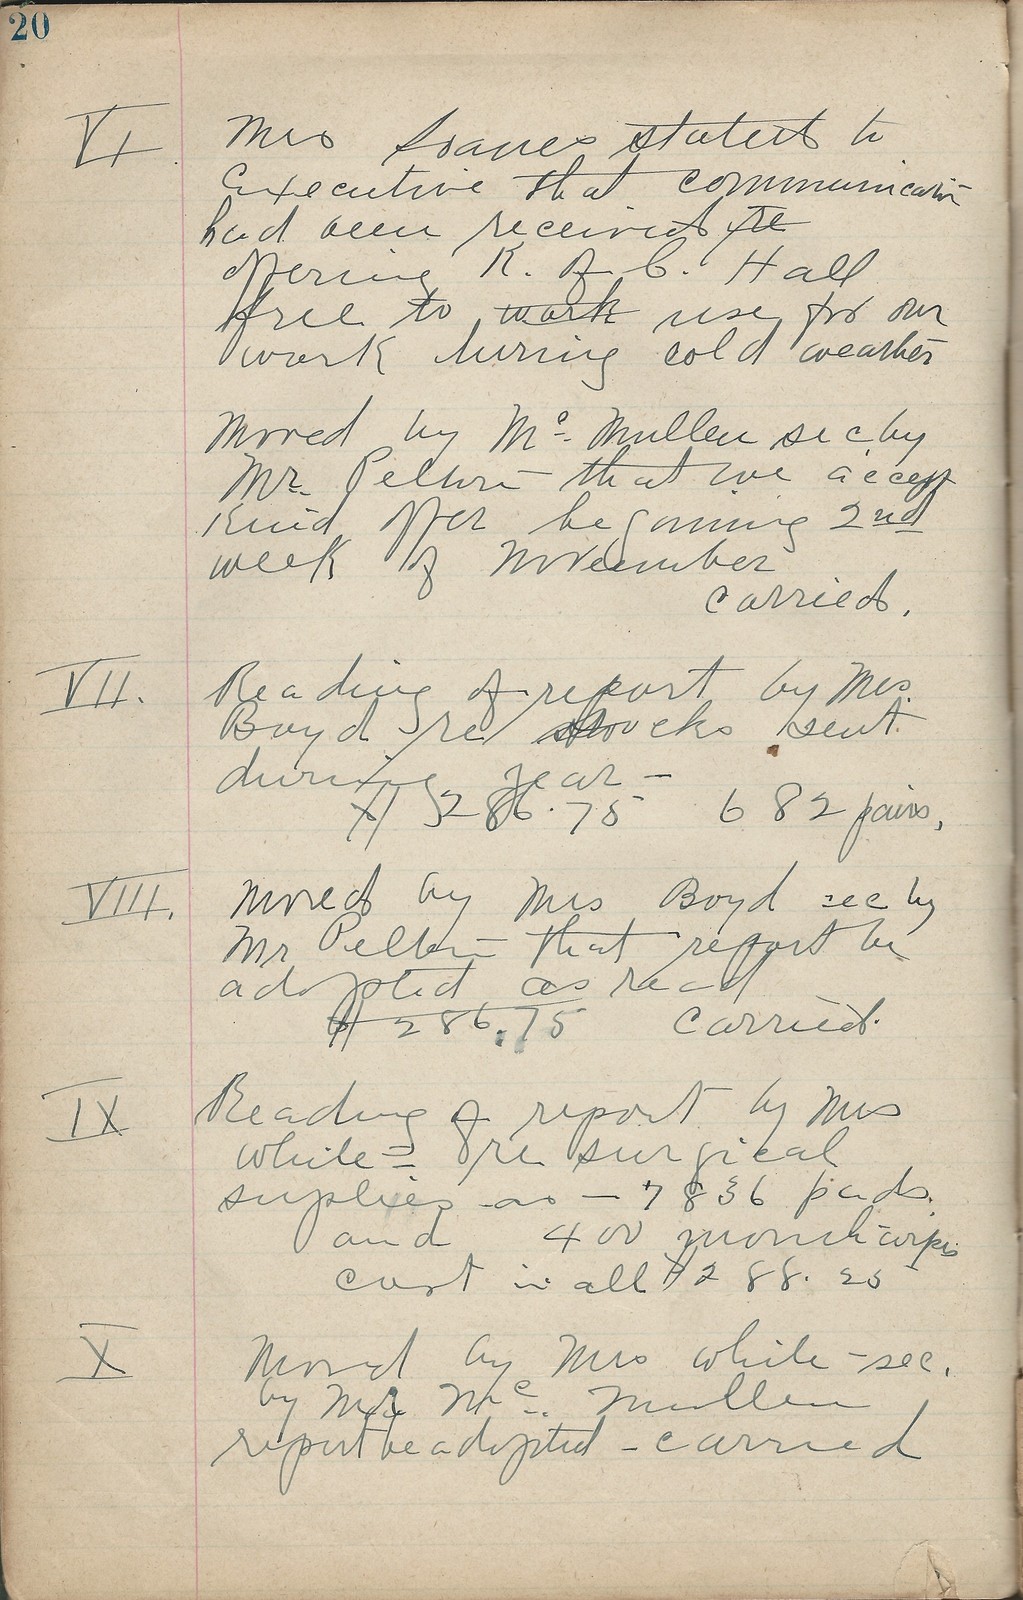 20
VI Mrs Soanes stated to
Executive that communication
had been received re
offering K. of C. Hall
free to work use for our
work during cold weather
Moved by Mc. Mullen sec by
Mr. Pelton - that we accept
kind offer beginning 2nd
week of November
carried.
VII. Reading of report by Mrs.
Boyd re socks sent
during year -
$286.75 682 pairs,
VIII. Moved by Mrs Boyd sec by
Mr Pelton - that report be
adopted as read
$286.75 carried.
IX Reading of report by Mrs
White - re surgical
supplies as - 7836 pads.
and 400 mouth wipes
cost in all $288.25
X Moved by Mrs White - sec.
by Mr Mc. Mullen
report be adopted - carried